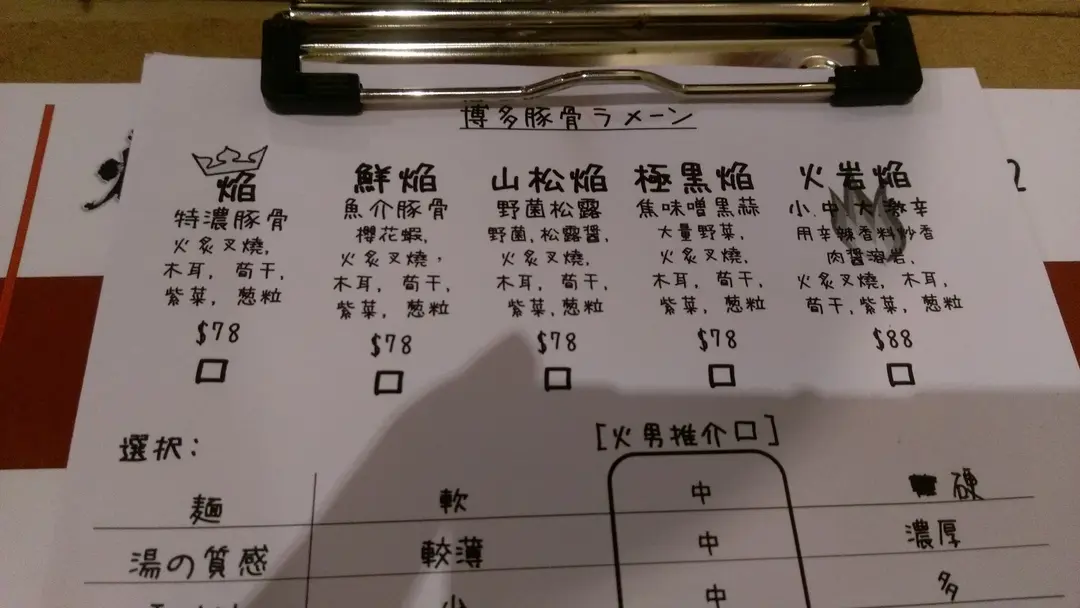 博多豚骨ラーメン
焔
特濃豚骨
火炙叉燒,
木耳, 荀干,
紫菜, 葱粒
$78
鮮焔
魚介豚骨
櫻花蝦,
火炙叉燒,
木耳, 荀干,
紫菜, 葱粒
$78
山松焔
野菌松露
野菌, 松露醬,
火炙叉燒,
木耳, 荀干,
紫菜, 葱粒
$78
極黒焔
焦味噌黒蒜
大量野菜,
火炙叉燒,
木耳, 荀干,
紫菜, 葱粒
$78
火岩焔
小.中.大.激辛
用辛辣香料炒香
肉醬溶岩,
火炙叉燒, 木耳,
荀干, 紫菜, 葱粒
$88
選択:
[火男推介口]
麺 軟 中 硬
湯の質感 較薄 中 濃厚
小 中 多
2